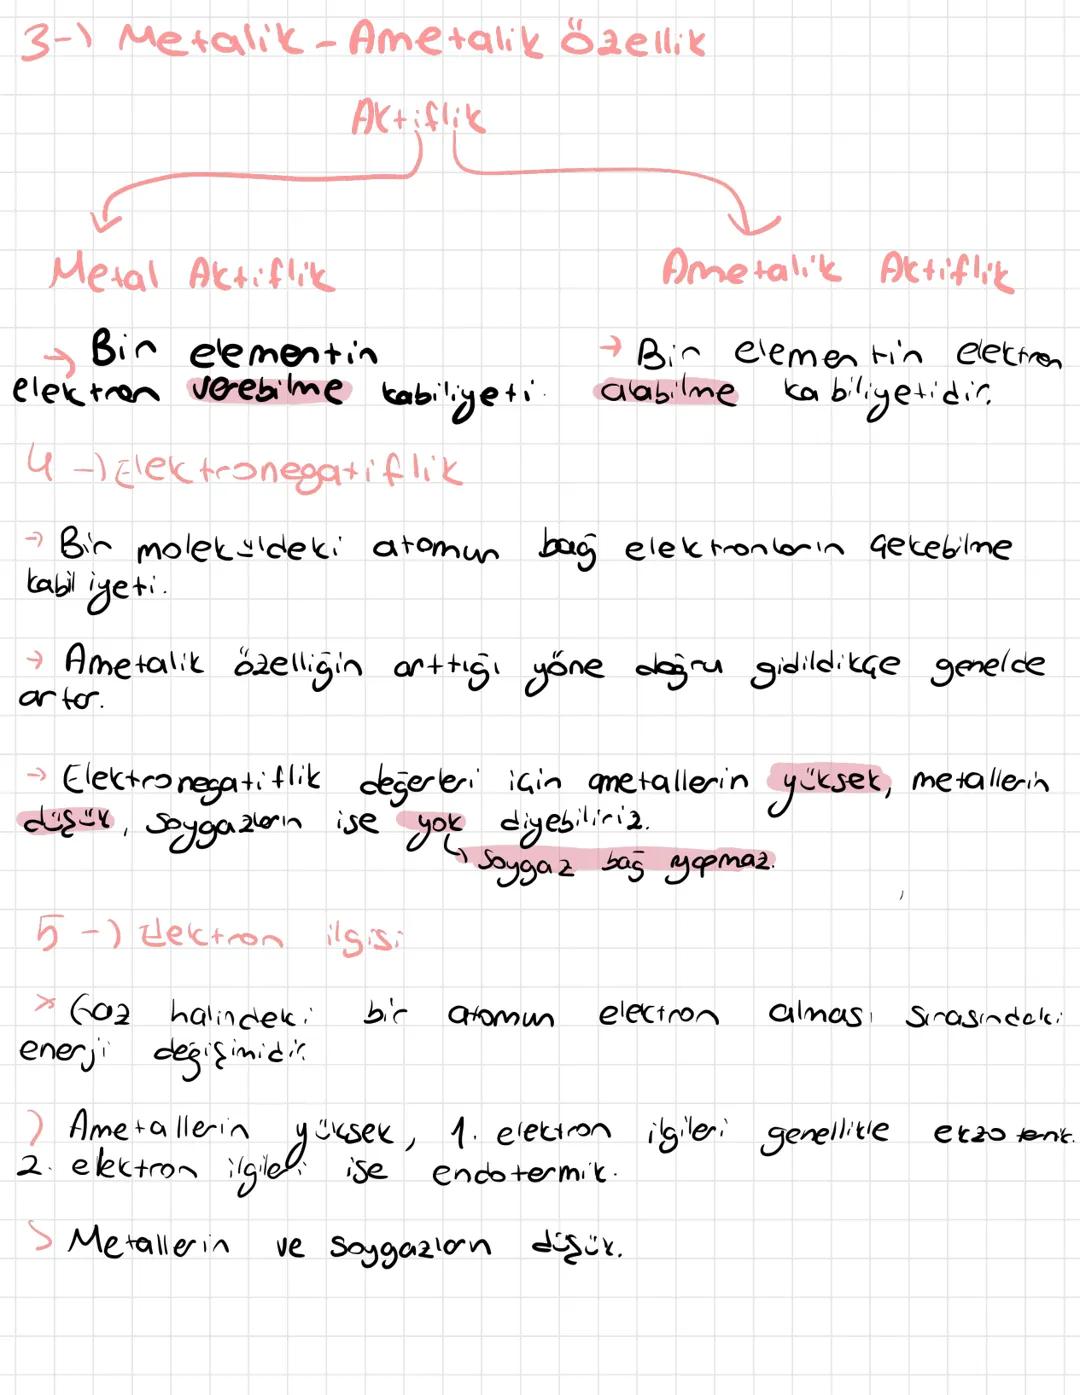 3-) Metalik - Ametalik Özellik
Aktiflik
Metal Aktiflik
Ametalik Aktiflik
→ Bir elementin
elektron verebilme kabiliyeti.
→ Bir elementin elektron
alabilme kabiliyetidir.
4-) Elektronegatiflik
→ Bir moleküldeki atomun bağ elektronların çekebilme
kabiliyeti.
→ Ametalik özelliğin arttığı yöne doğru gidildikçe genelde
artar.
→ Elektronegatiflik değerleri için ametallerin yüksek, metallerin
düşük, soygazların ise yok diyebiliriz.
↳ Soygaz bağ yapmaz.
5-) Elektron ilgisi
> Gaz halindeki bir atomun elektron alması sırasındaki
enerji değişimidir.
> Ametallerin yüksek, 1. elektron ilgileri genellikle
2. elektron ilgileri ise endotermik.
> Metallerin ve soygazların düşük.